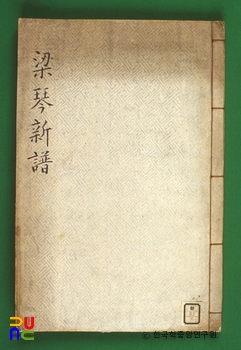 梁琴新譜
ⓒ한국학중앙연구원